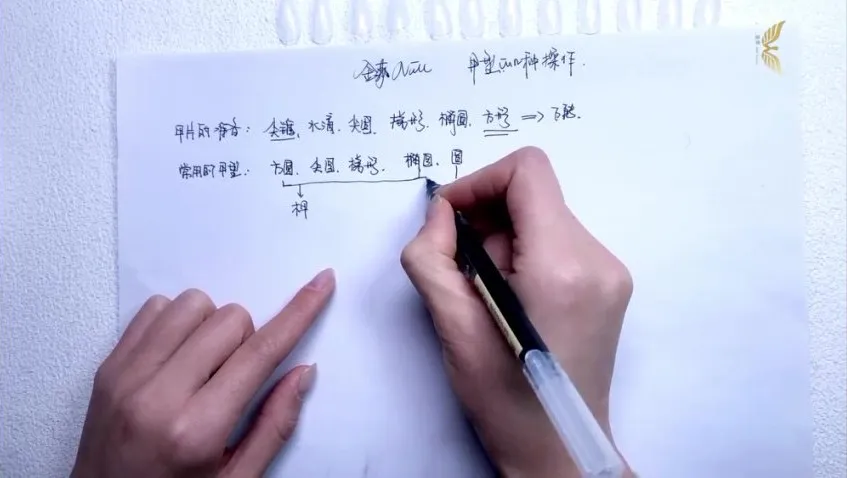 Nail 甲型的种操作.
甲片的形态: 尖锥、水滴、尖圆、梯形、椭圆、方形 =>
常用的甲型: 方圆、尖圆、梯形、椭圆、圆